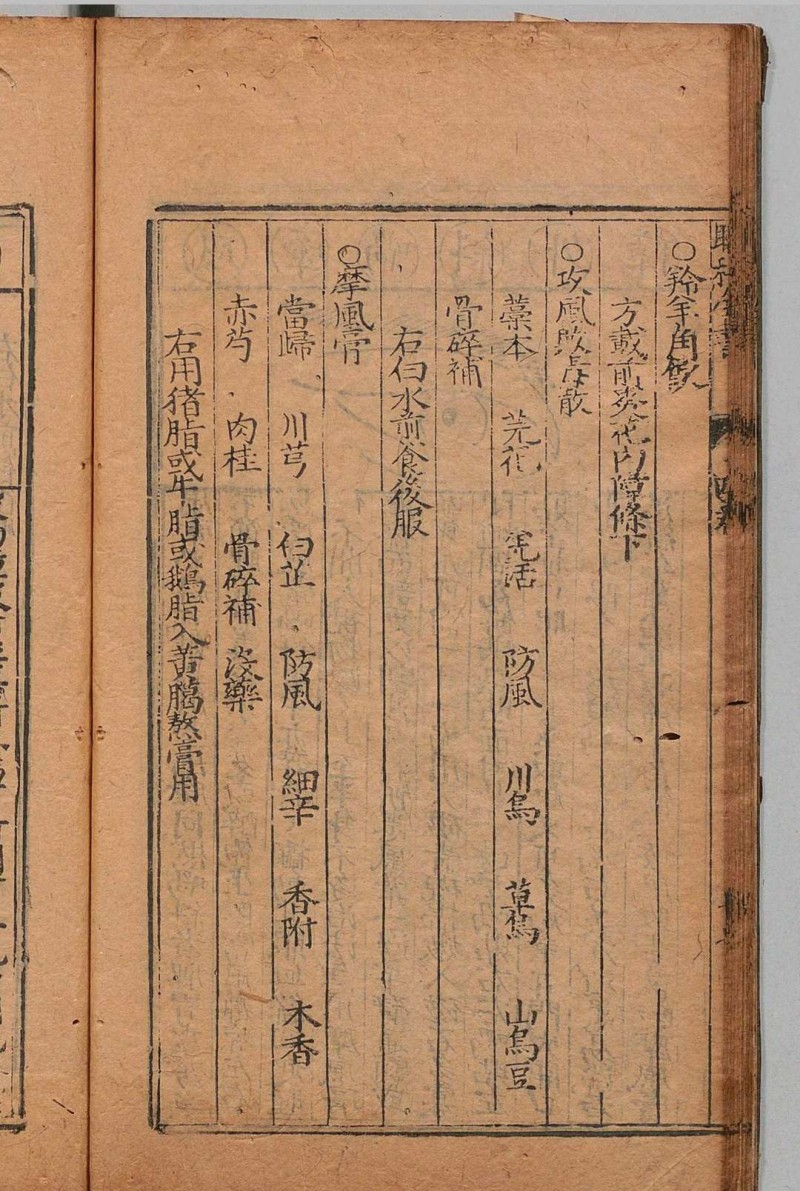 ○羚羊角飲
方載前棗花內障條下
○攻風敗毒散
藁本 芫花 羌活 防風 川烏 草烏 山烏豆
骨碎補
右白水煎食後服
○摩風膏
當歸 川芎 白芷 防風 細辛 香附 木香
赤芍 肉桂 骨碎補 沒藥
右用猪脂或牛脂或鵝脂入黃蠟熬膏用